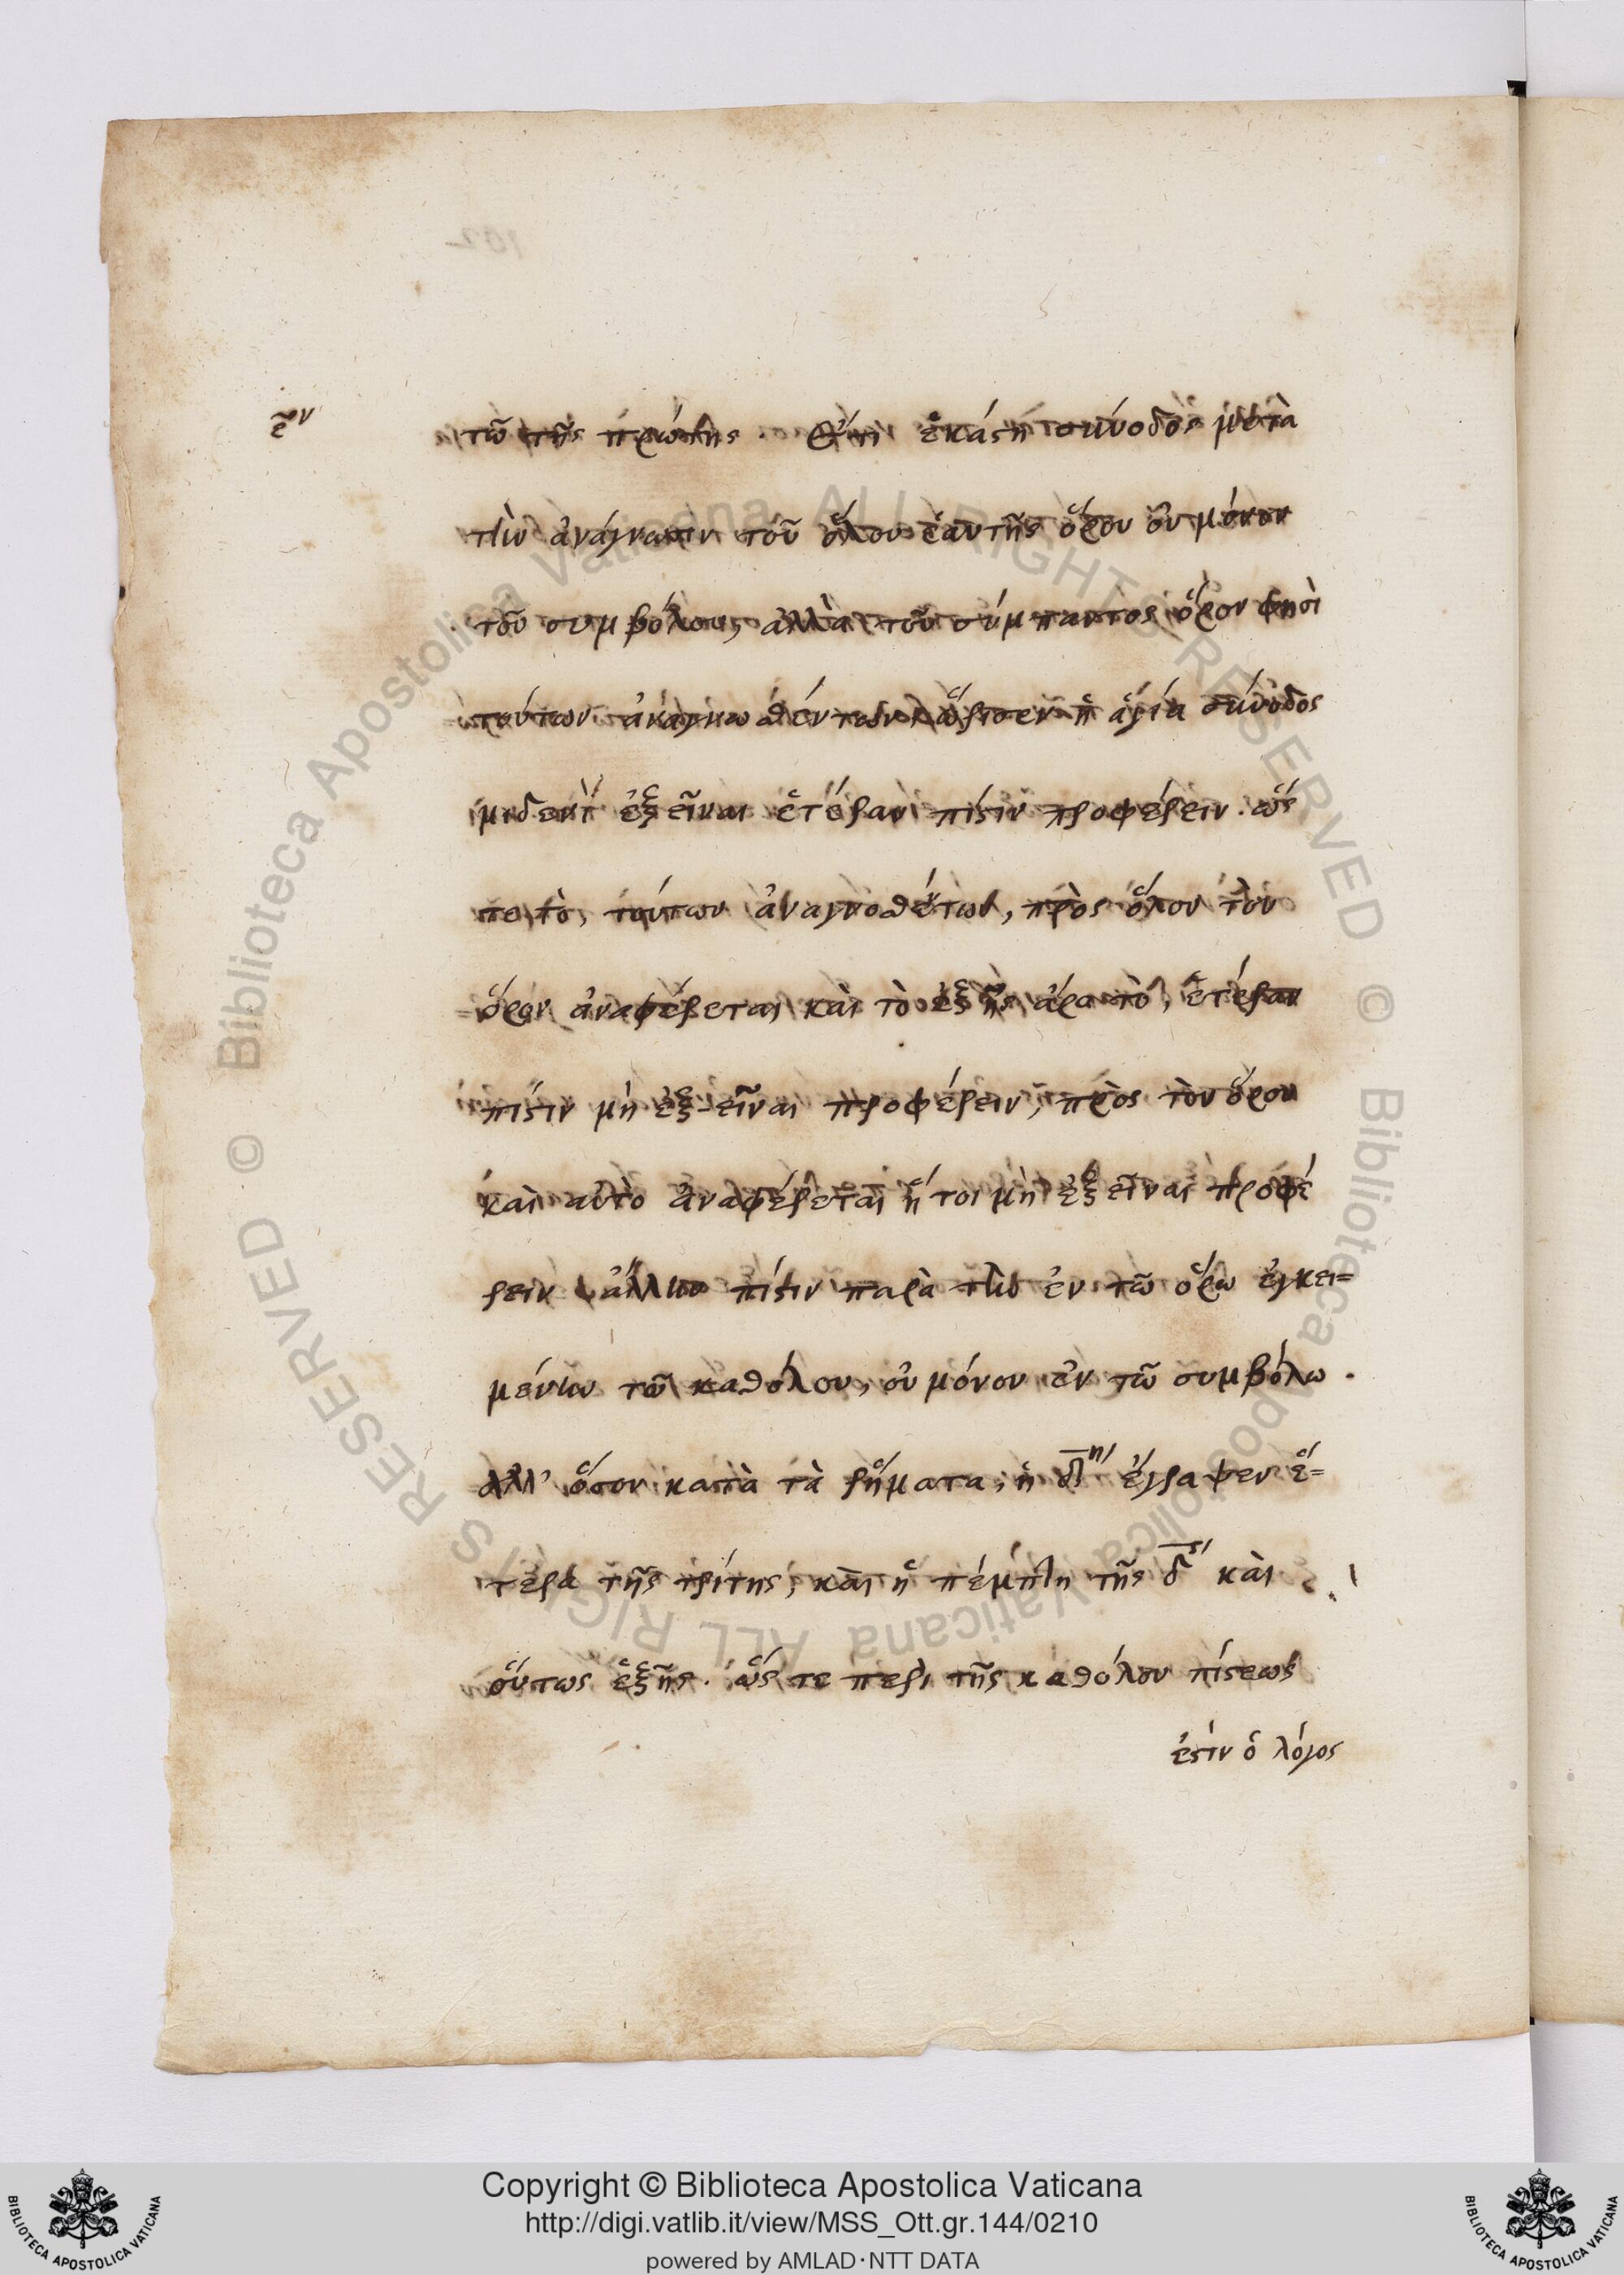 ε͂ν
τῶ τῆς πρώτης. Ἔτι ἑκάστη σύνοδος μετὰ
τὴν ἀνάγνωσιν τοῦ ὅλου ἑαυτῆς ὅρου οὐ μόνον
τοῦ συμβόλου, ἀλλὰ τοῦ σύμπαντος ὅρου φησὶ
τούτων ἀναγνωσθέντων ὥρισεν ἡ ἁγία σύνοδος
μηδενὶ ἐξεῖναι ἑτέραν πίστιν προφέρειν. ὥς
τε τὸ, τούτων ἀναγνοσθέντων, πρὸς ὅλον τὸν
ὅρον ἀναφέρεται καὶ τὸ ἑξῆς ἄρα τὸ, ἑτέραν
πίστιν μὴ ἐξεῖναι προφέρειν, πρὸς τὸν ὅρον
καὶ αὐτὸ ἀναφέρεται ἤτοι μὴ ἐξεῖναι προφέ
ρειν ἄλλην πίστιν παρὰ τὴν ἐν τῶ ὅρω ἐγκει=
μένην τῶ καθόλου, οὐ μόνον ἐν τῶ συμβόλω.
ἀλλ' ὅσον κατὰ τὰ ῥήματα, ἡ δ̅ⁿ ἔγραψεν ἕ=
τερα τῆς τρίτης, καὶ ἡ πέμπτη τῆς δ̅ καὶ
οὕτως ἑξῆς. ὥς τε περὶ τῆς καθόλου πίστεως
ἐστιν ὁ λόγος
Copyright © Biblioteca Apostolica Vaticana
http://digi.vatlib.it/view/MSS_Ott.gr.144/0210
powered by AMLAD·NTT DATA
BIBLIOTECA APOSTOLICA VATICANA
BIBLIOTECA APOSTOLICA VATICANA
© Biblioteca Apostolica Vaticana ALL RIGHTS RESERVED
© Biblioteca Apostolica Vaticana ALL RIGHTS RESERVED